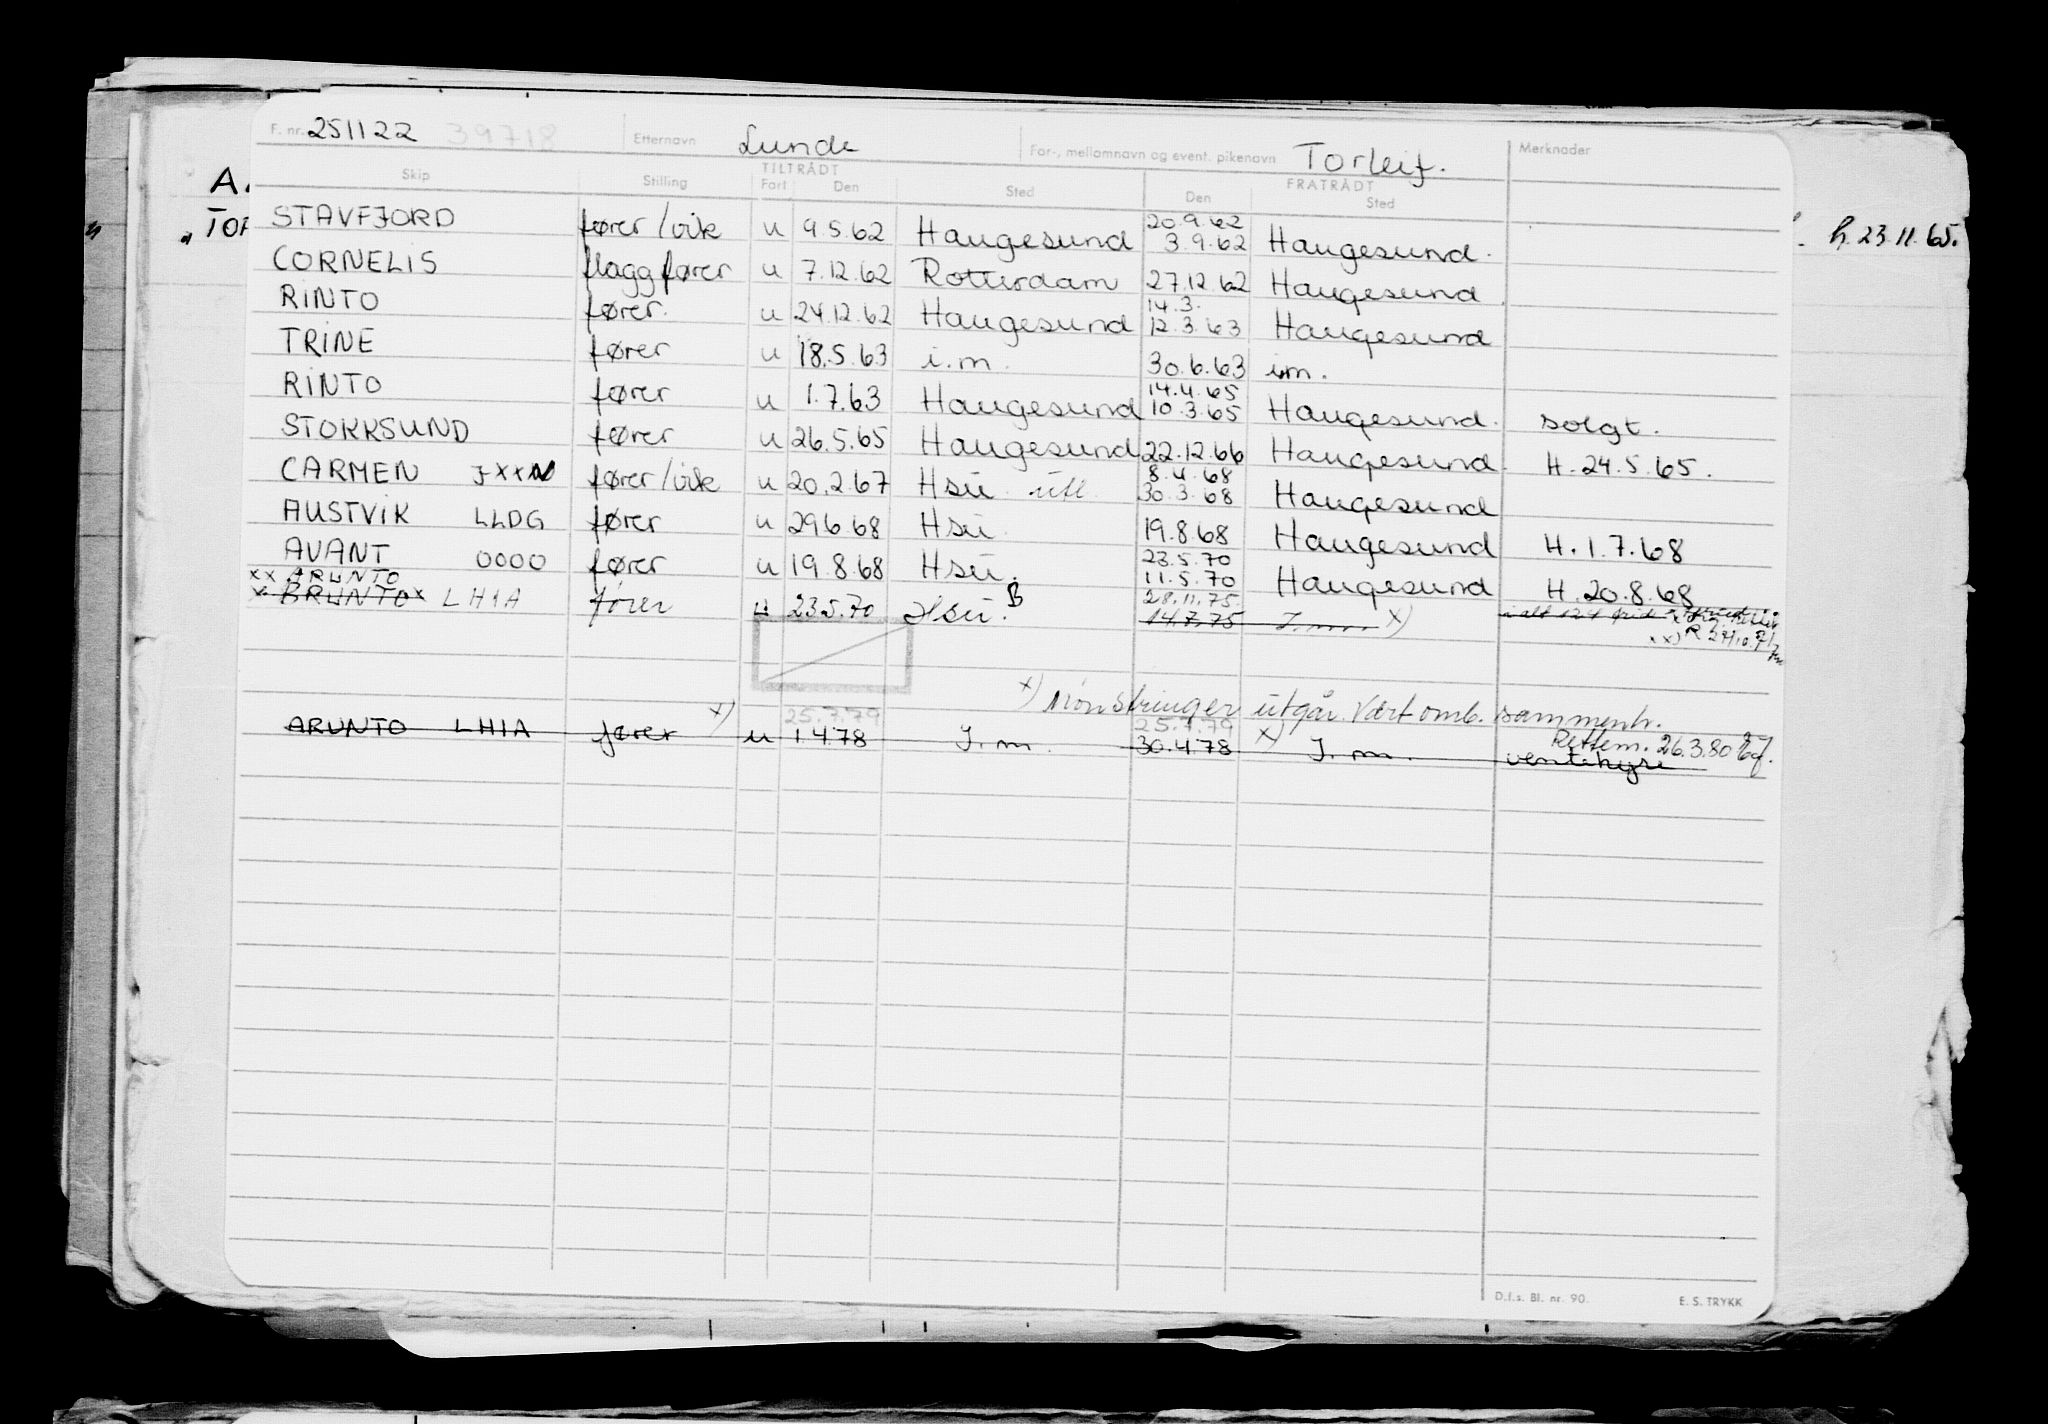 F. nr. 251122 39718 Etternavn Lunde For-, mellomnavn og event. pikenavn Torleif. Merknader
TILTRÅDT FRATRÅDT
Skip Stilling Fart Den Sted Den Sted
A.
"TOR
h. 23.11.65.
20.9.62
STAVFJORD fører/vik u 9.5.62 Haugesund 3.9.62 Haugesund.
CORNELIS flaggfører u 7.12.62 Rotterdam 27.12.62 Haugesund
14.3.
RINTO fører. u 24.12.62 Haugesund 12.3.63 Haugesund
TRINE fører u 18.5.63 i.m. 30.6.63 i.m.
14.4.65
RINTO fører u 1.7.63 Haugesund 10.3.65 Haugesund. solgt.
STOKKSUND fører u 26.5.65 Haugesund 22.12.66 Haugesund. H. 24.5.65.
8.4.68
CARMEN JXXN fører/vik u 20.2.67 Hsu. utl. 30.3.68 Haugesund
AUSTVIK LLDG fører u 29.6.68 Hsu. 19.8.68 Haugesund H. 1.7.68
23.5.70
AVANT OOOO fører u 19.8.68 Hsu. 11.5.70 Haugesund H. 20.8.68
xx ARUNTO 28.11.75.
x BRUNTO x LHIA fører u 23.5.70 Hsu. B 14.7.75 I.m. x) i alt 124
xx) R 27/10.71
x) Mønstringer utgår. Vært omb. sammenh.
25.7.79 25.7.79 Rettem. 26.3.80
ARUNTO LHIA fører x) u 1.4.78 I.m. 30.4.78 x) I.m. ventehyre
D.f.s. Bl. nr. 90. E. S. TRYKK